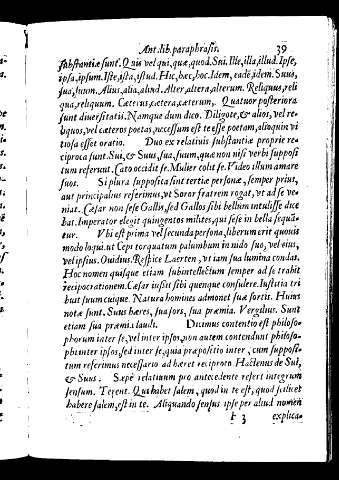 Ant. lib. paraphrasis. 39
substantiæ sunt. Quis vel qui, quæ, quod. Sui. Ille, illa, illud. Ipse,
ipsa, ipsum. Iste, ista, istud. Hic, hæc, hoc. Idem, eadē, idem. Suus,
sua, suum. Alius, alia, aliud. Alter, altera, alterum. Reliquus, reli
qua, reliquum. Cæterus, cætera, cæterum. Quatuor posteriora
sunt diuersitatis. Namque dum dico. Diligote, & alios, vel re-
liquos, vel cæteros poetas, necessum est te esse poetam, alioquin vi
tiosa esset oratio. Duo ex relatiuis substantiæ proprie re-
ciproca sunt. Sui, & Suus, sua, suum, quæ non nisi verbi supposi
tum referunt. Cato occidit se. Mulier colit se. Video illum amare
suos. Si plura supposita sint tertiæ personæ, semper prius,
aut principalius referimus, vt Soror fratrem rogat, vt ad se ve-
niat. Cæsar non sese Gallis, sed Gallos sibi bellum intulisse dice
bat. Imperator elegit quingentos milites, qui sese in bella sequā-
tur. Vbi est prima vel secunda persona, liberum erit quouis
modo loqui. vt Cepi torquatum palumbum in nido suo, vel eius,
vel ipsius. Ouidus. Respice Laerten, vt iam sua lumina condat.
Hoc nomen quisque etiam subintellectum semper ad se trahit
reciprocationem. Cæsar iussit sibi quenque consulere. Iustitia tri
buit suum cuique. Natura homines admonet suæ sortis. Huius
notæ sunt. Suus hæres, sua sors, sua præmia. Vergilius. Sunt
etiam sua præmia laudi. Ditimus contentio est philoso-
phorum inter se, vel inter ipsos, non autem contendunt philoso-
phi inter ipsos, sed inter se, quia præpositio inter, cum supposi-
tum referimus necessario adhæret reciproco Hactenus de Sui,
& Suus. Sæpè relatiuum pro antecedente refert integrum
sensum. Terent. Qui habet salem, quod in te est, quod scilicet
habere salem, est in te. Aliquando sensus ipse per aliud nomen
F 3 explica-